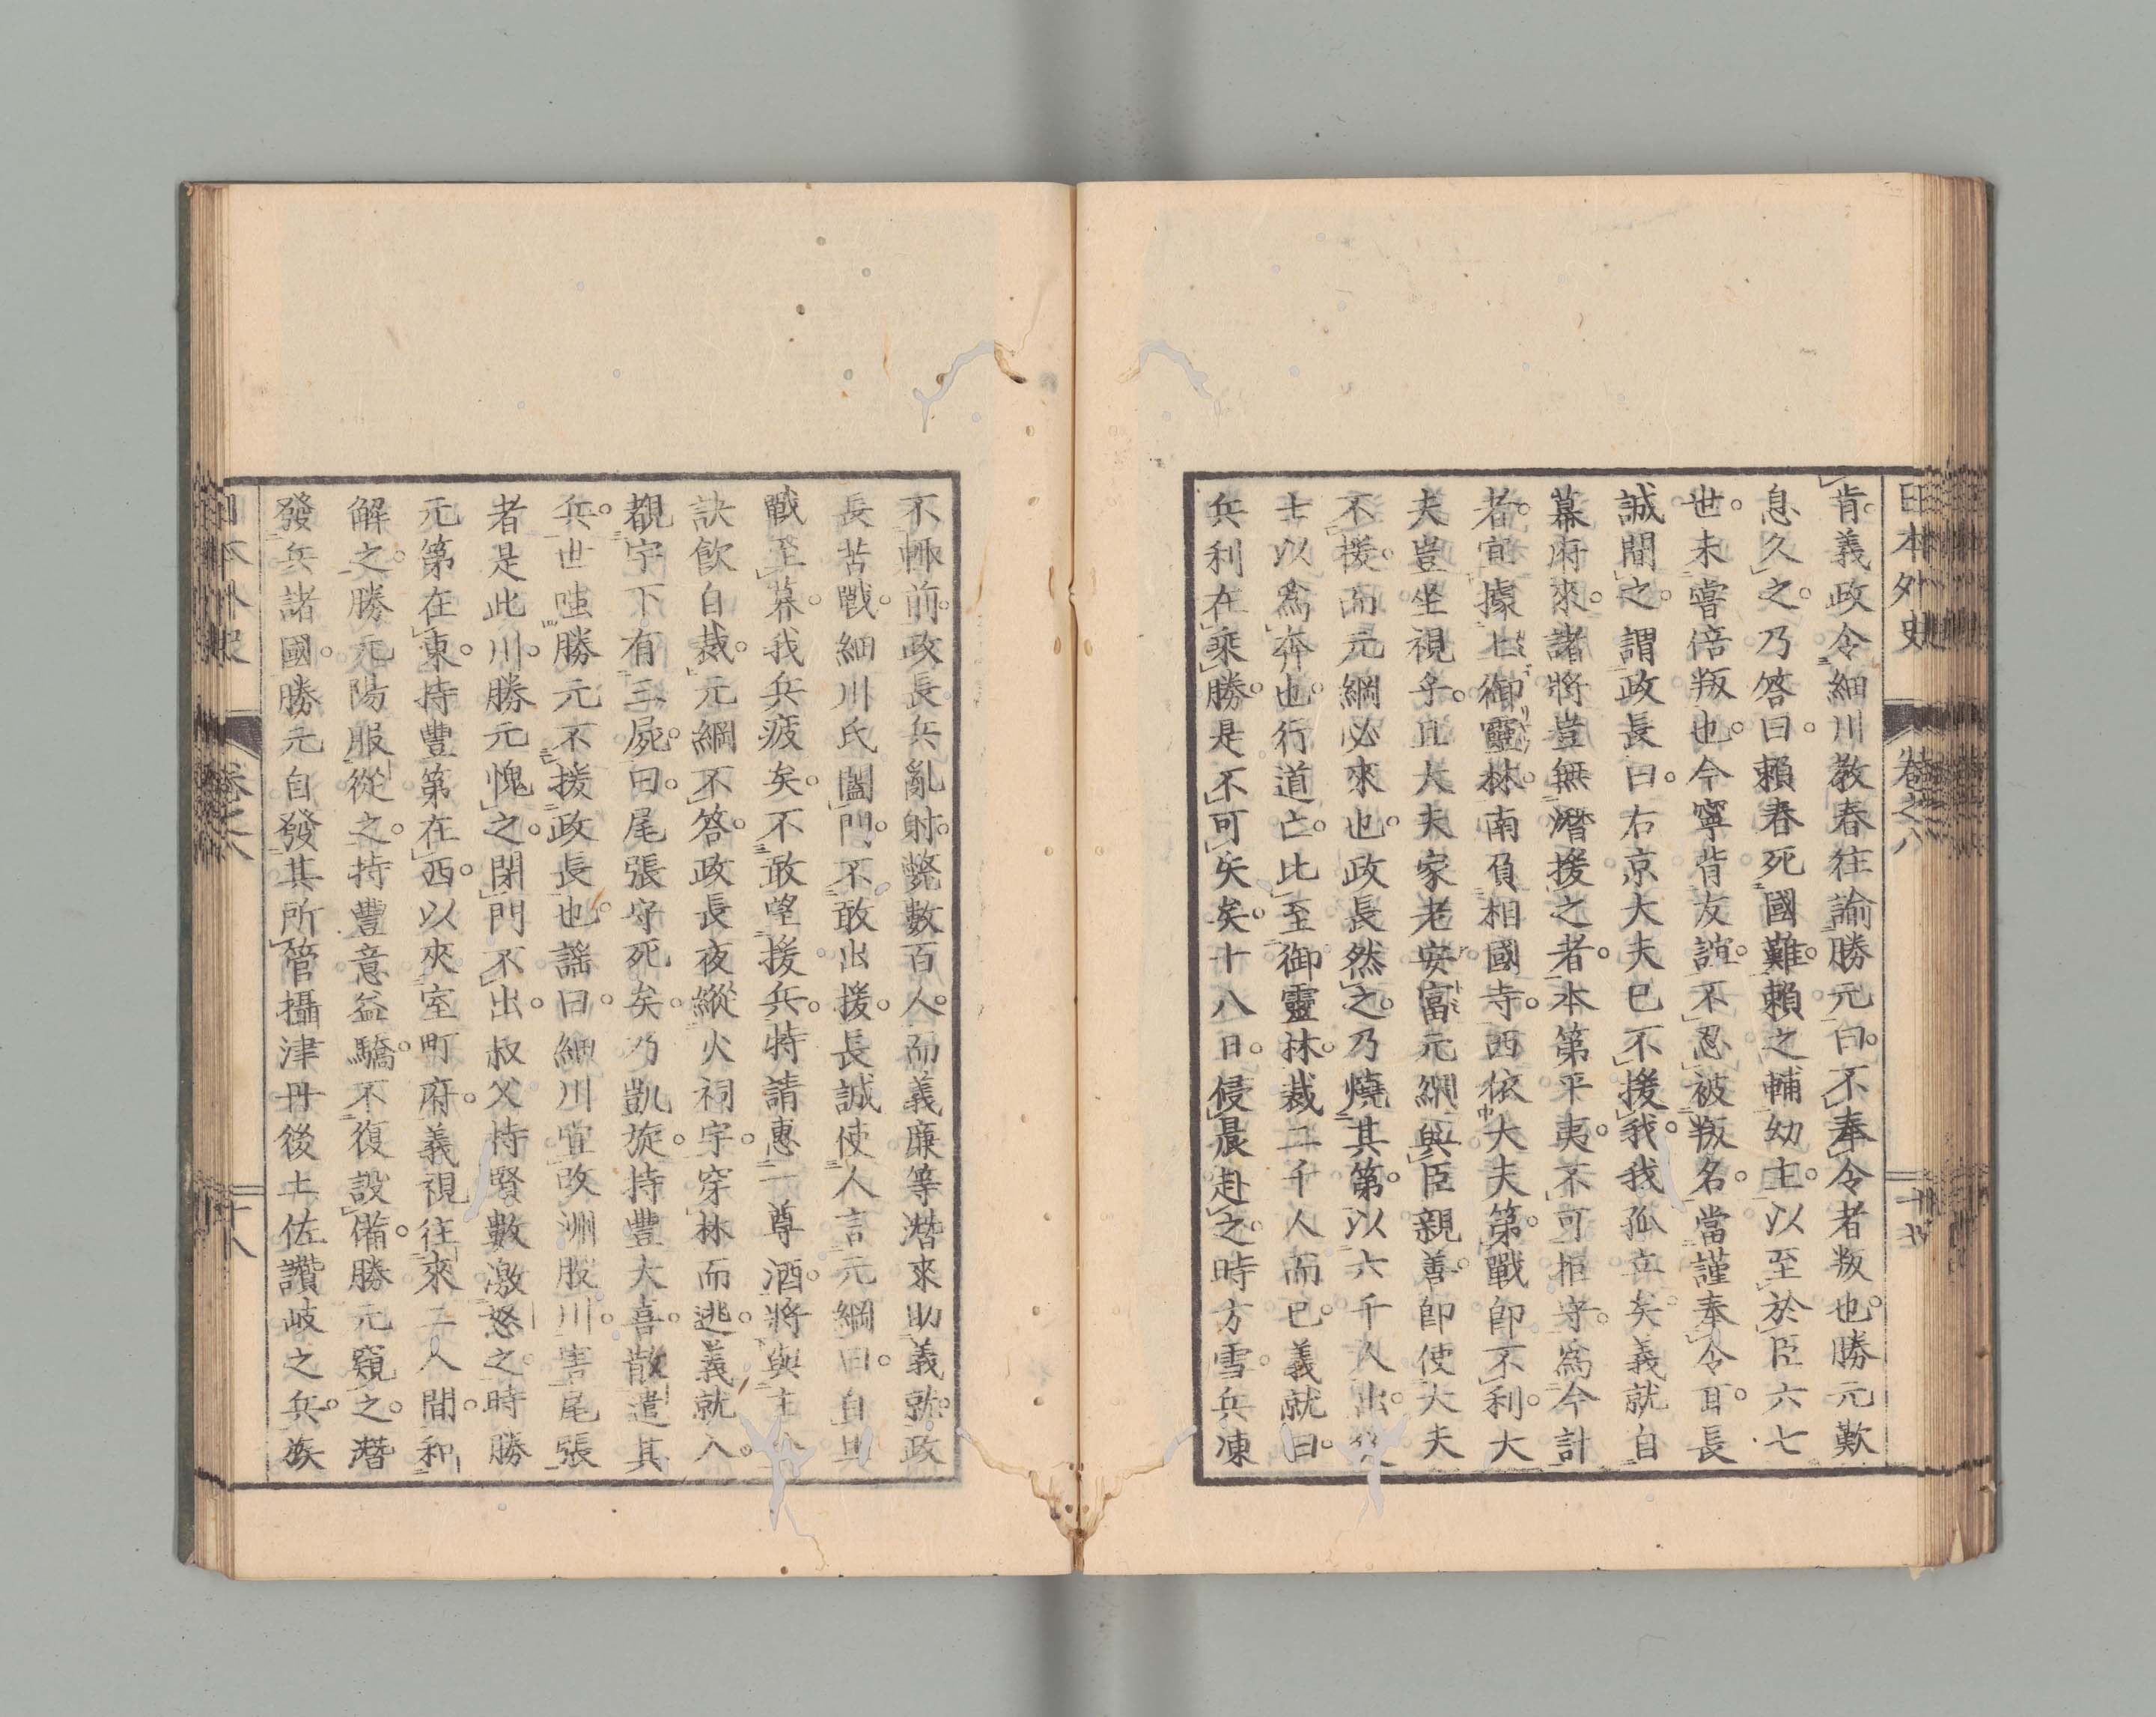 日本外史 卷之八
肯。義政令細川教春往諭勝元曰。不奉令者叛也。勝元歎
息久之。乃答曰。賴春死國難。賴之輔幼主。以至於臣六七
世。未嘗倍叛也。今寧背友誼。不忍被叛名。當謹奉令耳。長
誠聞之。謂政長曰。右京大夫已不援我。我孤立矣。義就自
幕府來。諸將豈無潛援之者。本第平夷。不可拒守。爲今計
者。宜據上御靈林。南負相國寺。西依大夫第。戰卽不利。大
夫豈坐視乎。且大夫家老安富元綱與臣親善。卽使大夫
不援。而元綱必來也。政長然之。乃燒其第。以六千人出。
士以爲奔也。行道亡。比至御靈林。裁二千人而已。義就曰。
兵利在乘勝。是不可失矣。十八日。侵晨赴之。時方雪。兵凍
不輙前。政長兵亂射。斃數百人。而義廉等潛來助義就。政
長苦戰。細川氏闔門。不敢出援。長誠使人言元綱曰。自
戰至暮。我兵疲矣。不敢望援兵。特請惠一尊酒。將與主
訣飮自裁。元綱不答。政長夜縱火祠宇。穿林而逃。義就入。
覩宇下有三屍。曰。尾張守死矣。乃凱旋。持豐大喜。散遣其
兵。世嗤勝元不援政長也。謠曰。細川宜改洲股川。害尾張
者是此川。勝元愧之。閉門不出。叔父持賢數激怒之。時勝
元第在東。持豐第在西。以夾室町府。義視往來二人間。和
解之。勝元陽服從之。持豐意益驕。不復設備。勝元窺之。潛
發兵諸國。勝元自發其所管攝津丹後土佐讚岐之兵。族
卷之八 十八